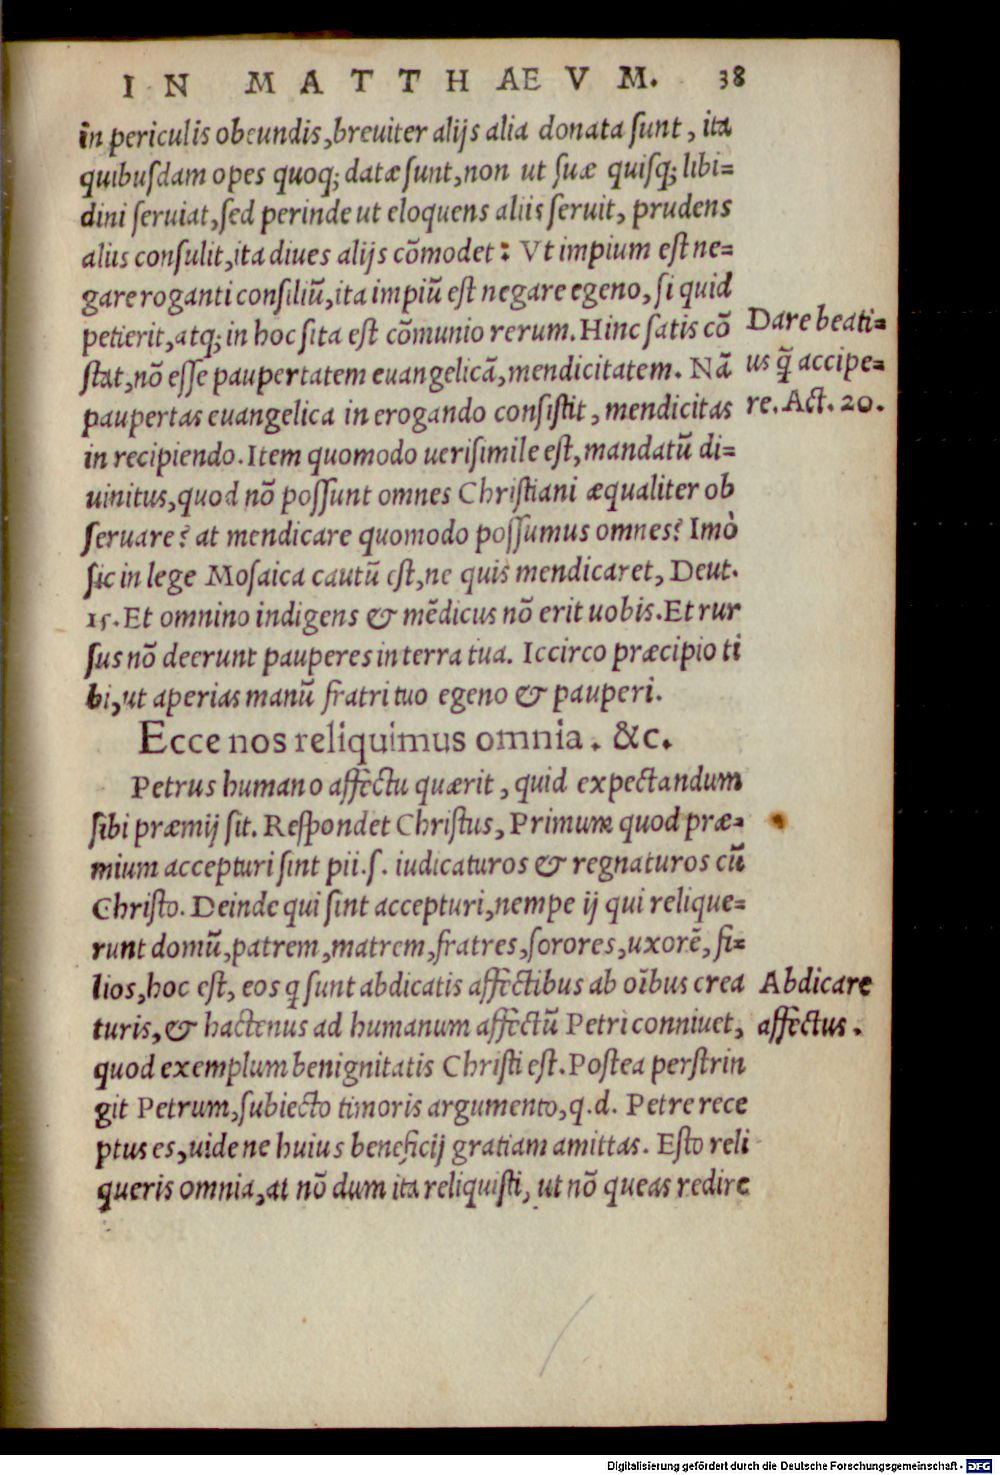 IN MATTHAEVM. 38
in periculis obeundis, breuiter alijs alia donata sunt, ita
quibusdam opes quoq; datæ sunt, non ut suæ quisq; libi=
dini seruiat, sed perinde ut eloquens aliis seruit, prudens
aliis consulit, ita diues alijs cõmodet: Vt impium est ne=
gare roganti consiliũ, ita impiũ est negare egeno, si quid
petierit, atq; in hoc sita est cõmunio rerum. Hinc satis cõ
stat, nõ esse paupertatem euangelicã, mendicitatem. Nã
paupertas euangelica in erogando consistit, mendicitas
in recipiendo. Item quomodo uerisimile est, mandatũ di=
uinitus, quod nõ possunt omnes Christiani æqualiter ob
seruare? at mendicare quomodo possumus omnes? Imò
sic in lege Mosaica cautũ est, ne quis mendicaret, Deut.
15. Et omnino indigens & mẽdicus nõ erit uobis. Et rur
sus nõ deerunt pauperes in terra tua. Iccirco præcipio ti
bi, ut aperias manũ fratri tuo egeno & pauperi.
Dare beati=
us q̃ accipe=
re. Act. 20.
Ecce nos reliquimus omnia. &c.
Petrus humano affectu quærit, quid expectandum
sibi præmij sit. Respondet Christus, Primum quod præ=
mium accepturi sint pii.s. iudicaturos & regnaturos cũ
Christo. Deinde qui sint accepturi, nempe ij qui relique=
runt domũ, patrem, matrem, fratres, sorores, uxorẽ, fi=
lios, hoc est, eos q sunt abdicatis affectibus ab oĩbus crea
turis, & hactenus ad humanum affectũ Petri conniuet,
quod exemplum benignitatis Christi est. Postea perstrin
git Petrum, subiecto timoris argumento, q.d. Petre rece
ptus es, uide ne huius beneficij gratiam amittas. Esto reli
queris omnia, at nõ dum ita reliquisti, ut nõ queas redire
Abdicare
affectus.
Digitalisierung gefördert durch die Deutsche Forschungsgemeinschaft - DFG